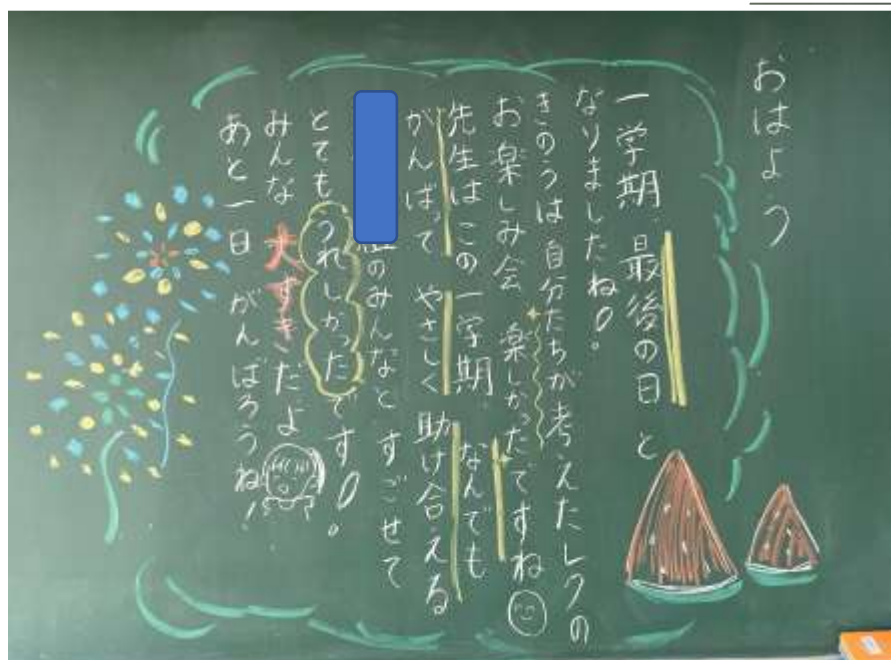 おはよう
一学期 最後の日と
なりましたね！。
きのうは自分たちが考えたレクの
お楽しみ会 楽しかったですね
先生はこの一学期 なんでも
がんばって やさしく 助け合える
組のみんなと すごせて
とても うれしかったです！。
みんな 大すきだよ
あと一日 がんばろうね！